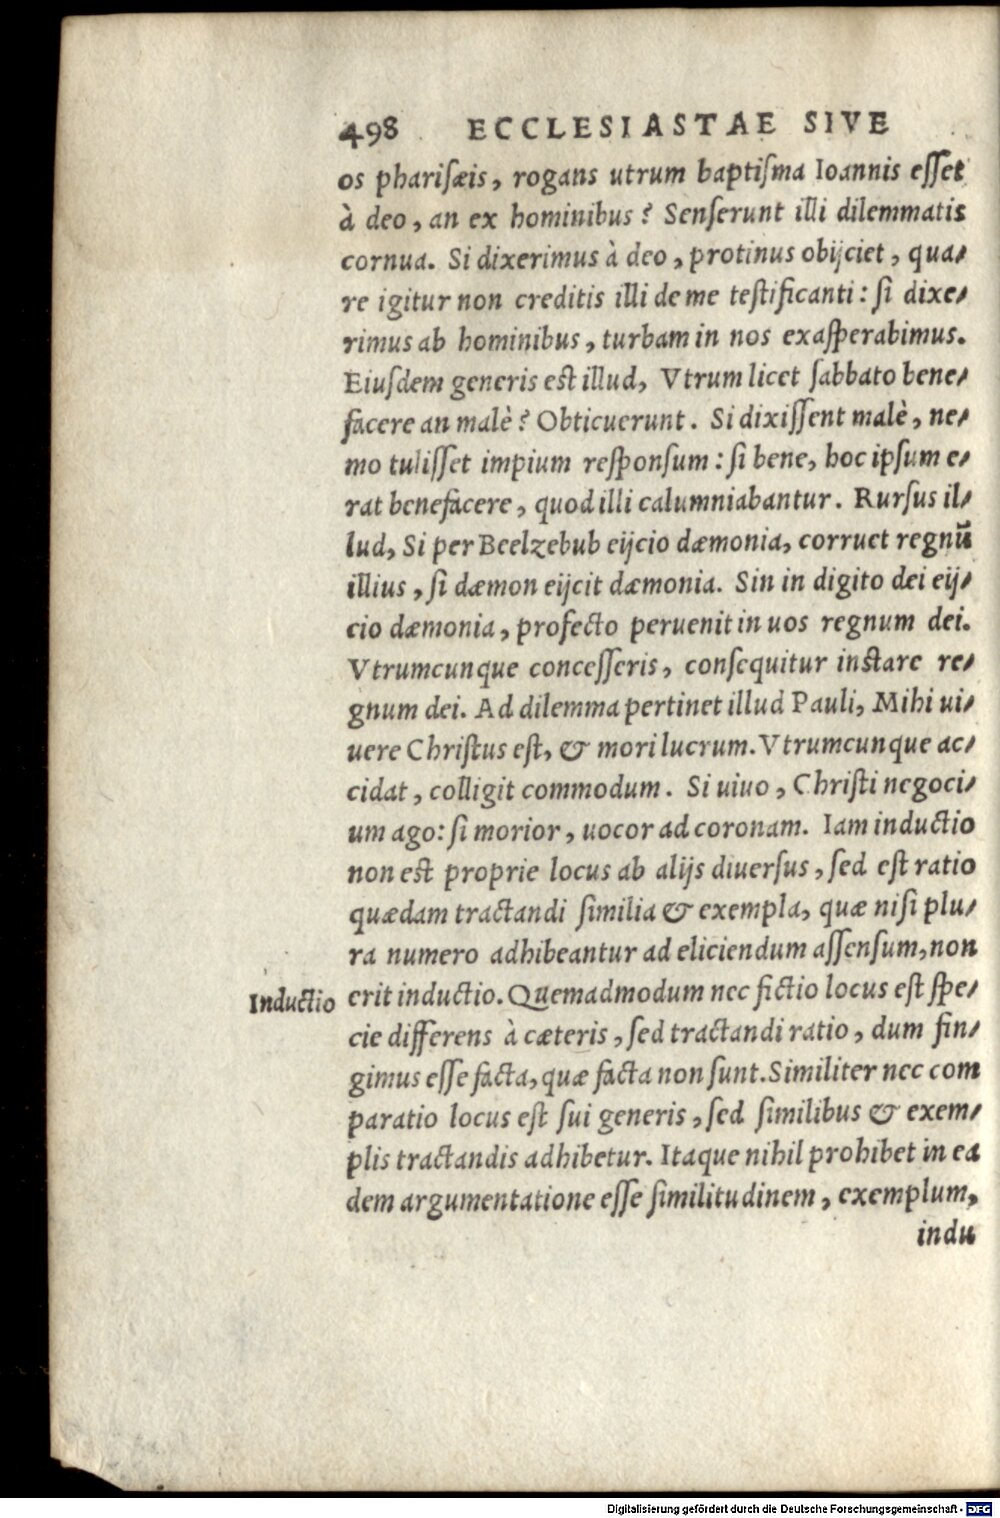 498 ECCLESIASTAE SIVE
os pharisæis, rogans utrum baptisma Ioannis esset
à deo, an ex hominibus? Senserunt illi dilemmatis
cornua. Si dixerimus à deo, protinus obijciet, qua/
re igitur non creditis illi de me testificanti: si dixe/
rimus ab hominibus, turbam in nos exasperabimus.
Eiusdem generis est illud, Vtrum licet sabbato bene/
facere an malè? Obticuerunt. Si dixissent malè, ne/
mo tulisset impium responsum: si bene, hoc ipsum e/
rat benefacere, quod illi calumniabantur. Rursus il/
lud, Si per Beelzebub eijcio dæmonia, corruet regnū
illius, si dæmon eijcit dæmonia. Sin in digito dei eij/
cio dæmonia, profecto peruenit in uos regnum dei.
Vtrumcunque concesseris, consequitur instare re/
gnum dei. Ad dilemma pertinet illud Pauli, Mihi ui/
uere Christus est, & mori lucrum. Vtrumcunque ac/
cidat, colligit commodum. Si uiuo, Christi negoci/
um ago: si morior, uocor ad coronam. Iam inductio
non est proprie locus ab alijs diuersus, sed est ratio
quædam tractandi similia & exempla, quæ nisi plu/
ra numero adhibeantur ad eliciendum assensum, non
Inductio erit inductio. Quemadmodum nec fictio locus est spe/
cie differens à cæteris, sed tractandi ratio, dum fin/
gimus esse facta, quæ facta non sunt. Similiter nec com
paratio locus est sui generis, sed similibus & exem/
plis tractandis adhibetur. Itaque nihil prohibet in ea
dem argumentatione esse similitudinem, exemplum,
indu
Digitalisierung gefördert durch die Deutsche Forschungsgemeinschaft - DFG